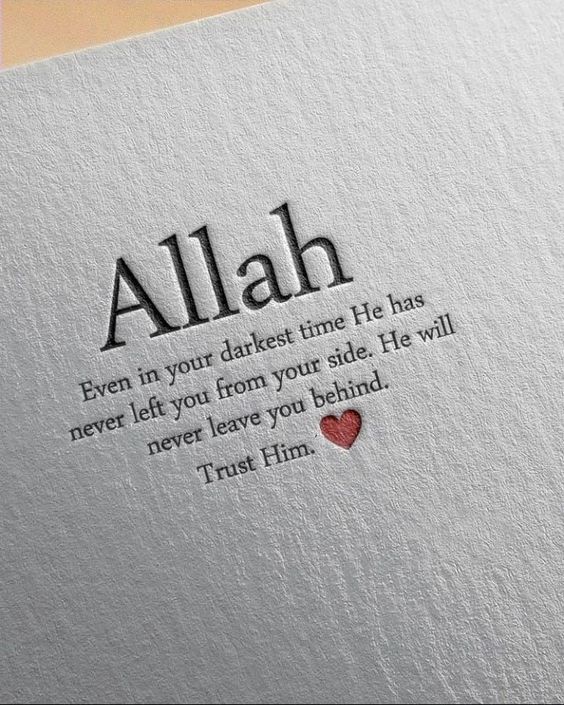 Allah
Even in your darkest time He has
never left you from your side. He will
never leave you behind.
Trust Him.